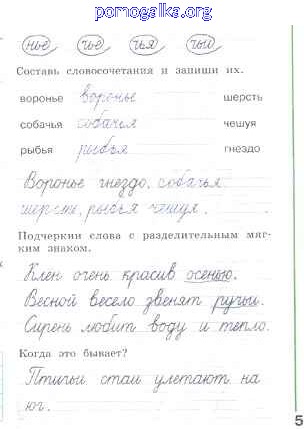 pomogalka.org
нье чье чья чьи
Составь словосочетания и запиши их.
воронье воронье шерсть
собачья собачья чешуя
рыбья рыбья гнездо
Воронье гнездо, собачья
шерсть, рыбья чешуя.
Подчеркни слова с разделительным мяг-
ким знаком.
Клен очень красив осенью.
Весной весело звенят ручьи.
Сирень любит воду и тепло.
Когда это бывает?
Птичьи стаи улетают на
юг.
5